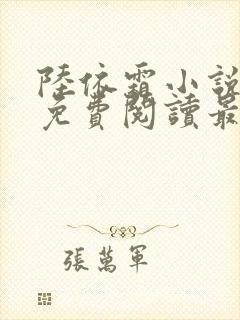 陸依霜小說
免費閱讀最
張萬軍